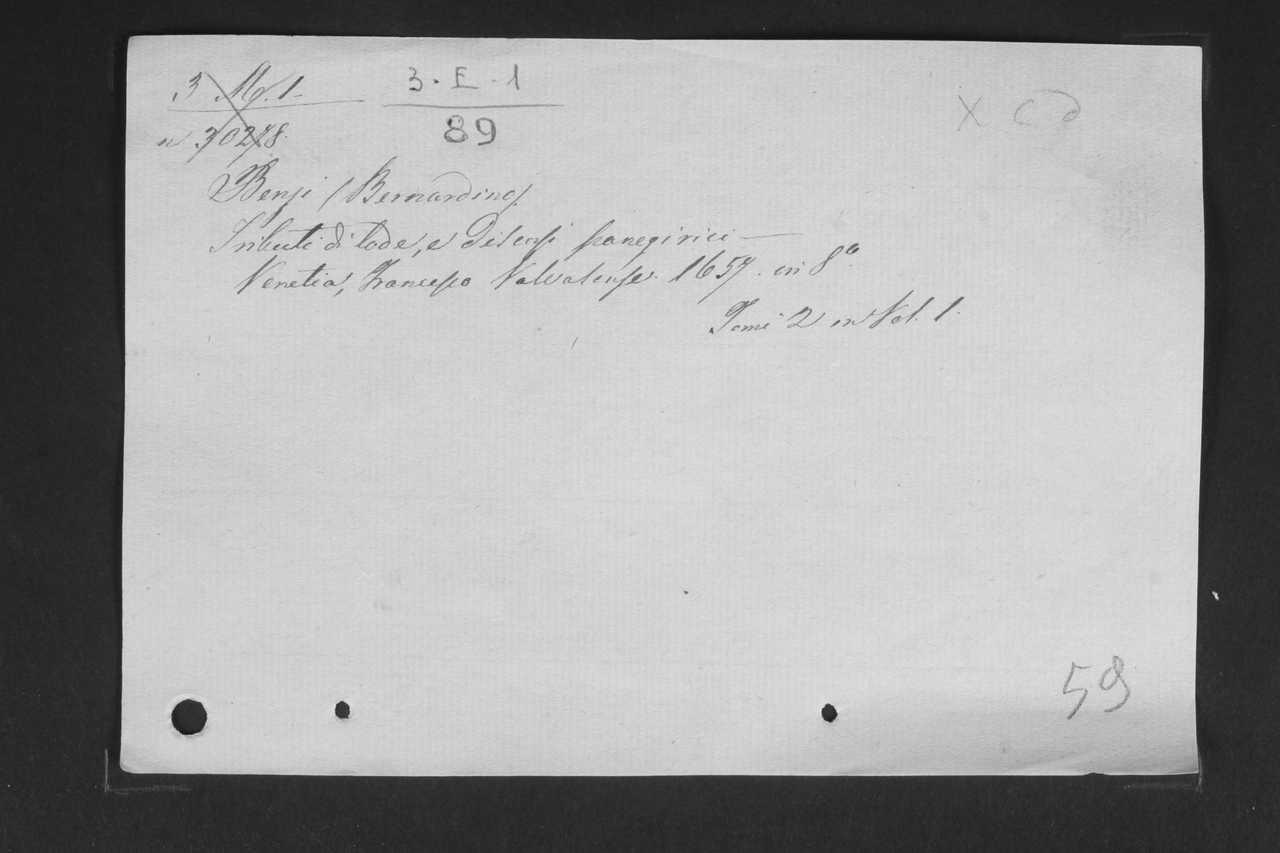 3 M. 1.
3. E. 1
89
X C D
n 30278
Benzi (Bernardino)
Tributi di lode, e discorsi panegirici —
Venetia, Francesco Valvalense. 1657. in 8°.
Tomi 2 in Vol. 1.
59